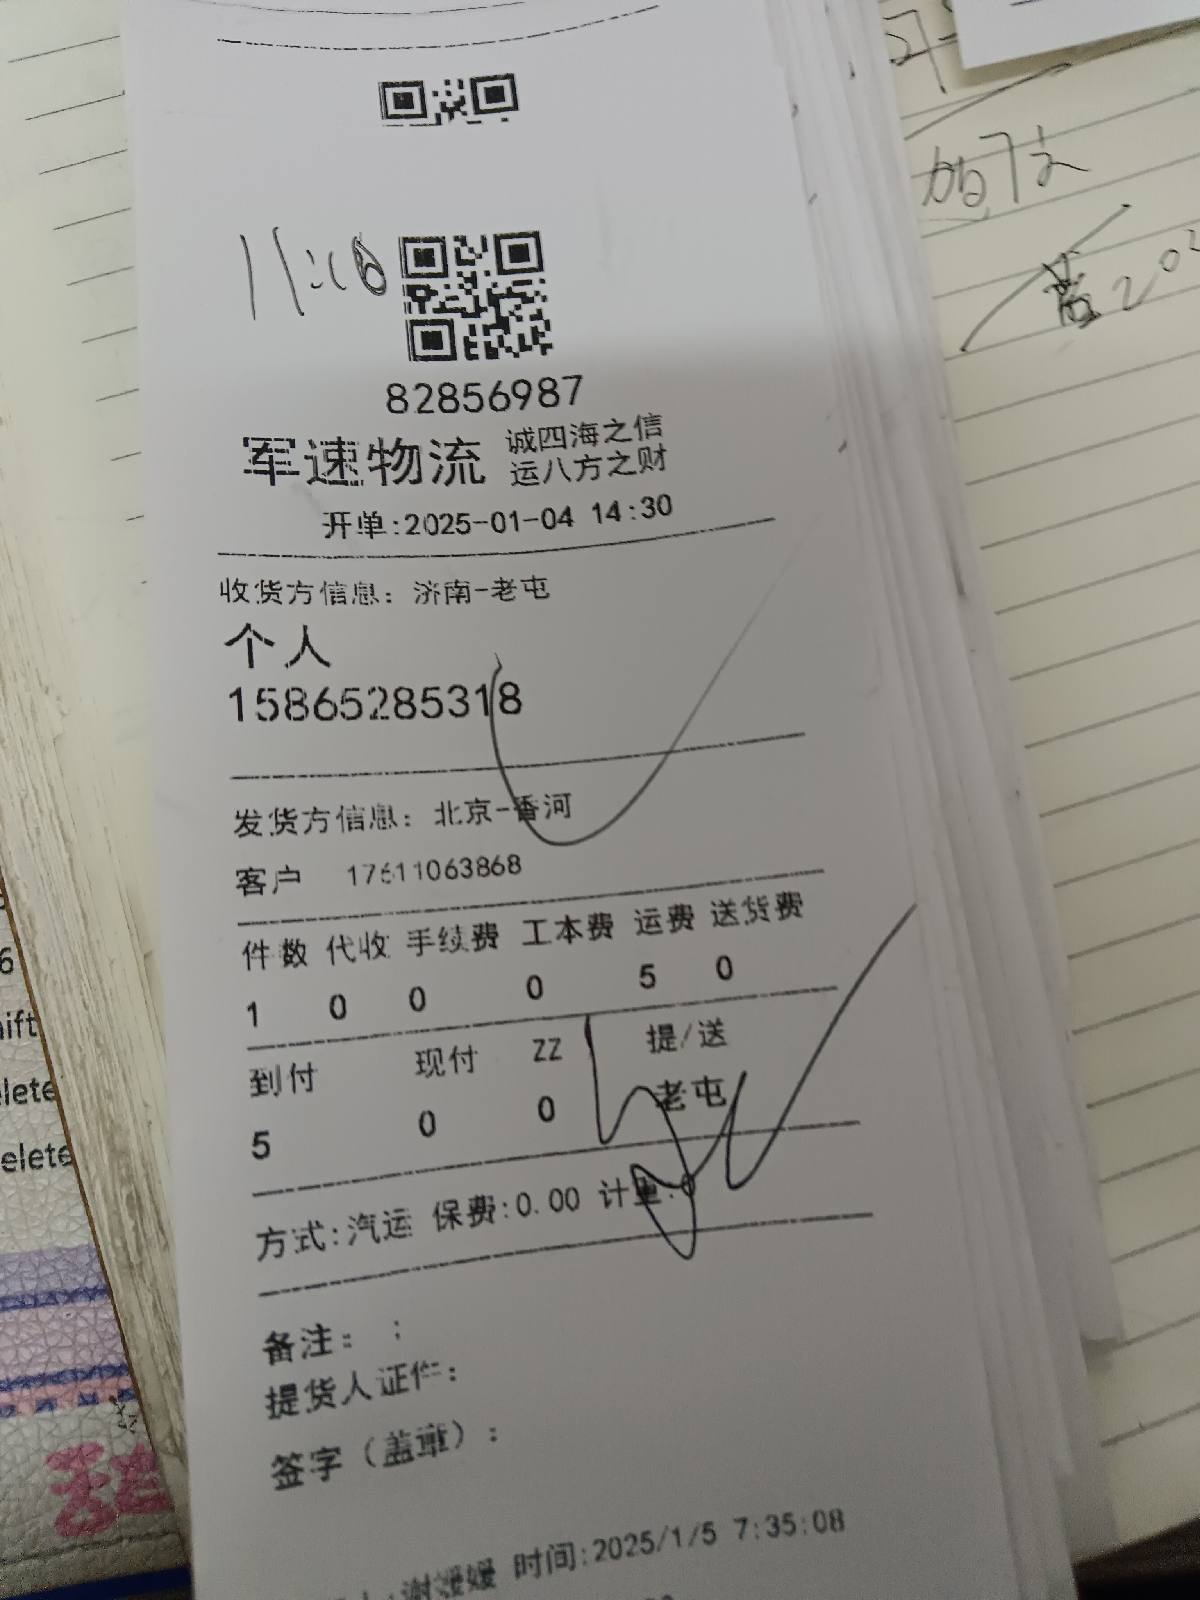 11:16
82856987
军速物流 诚四海之信
运八方之财
开单:2025-01-04 14:30
收货方信息: 济南-老屯
个人
15865285318
发货方信息: 北京-香河
客户 17611063868
件数 代收 手续费 工本费 运费 送货费
1 0 0 0 5 0
到付 现付 ZZ 提/送
5 0 0 老屯
方式:汽运 保费:0.00 计重:0
备注: ;
提货人证件:
签字(盖章):
谢媛媛 时间:2025/1/5 7:35:08